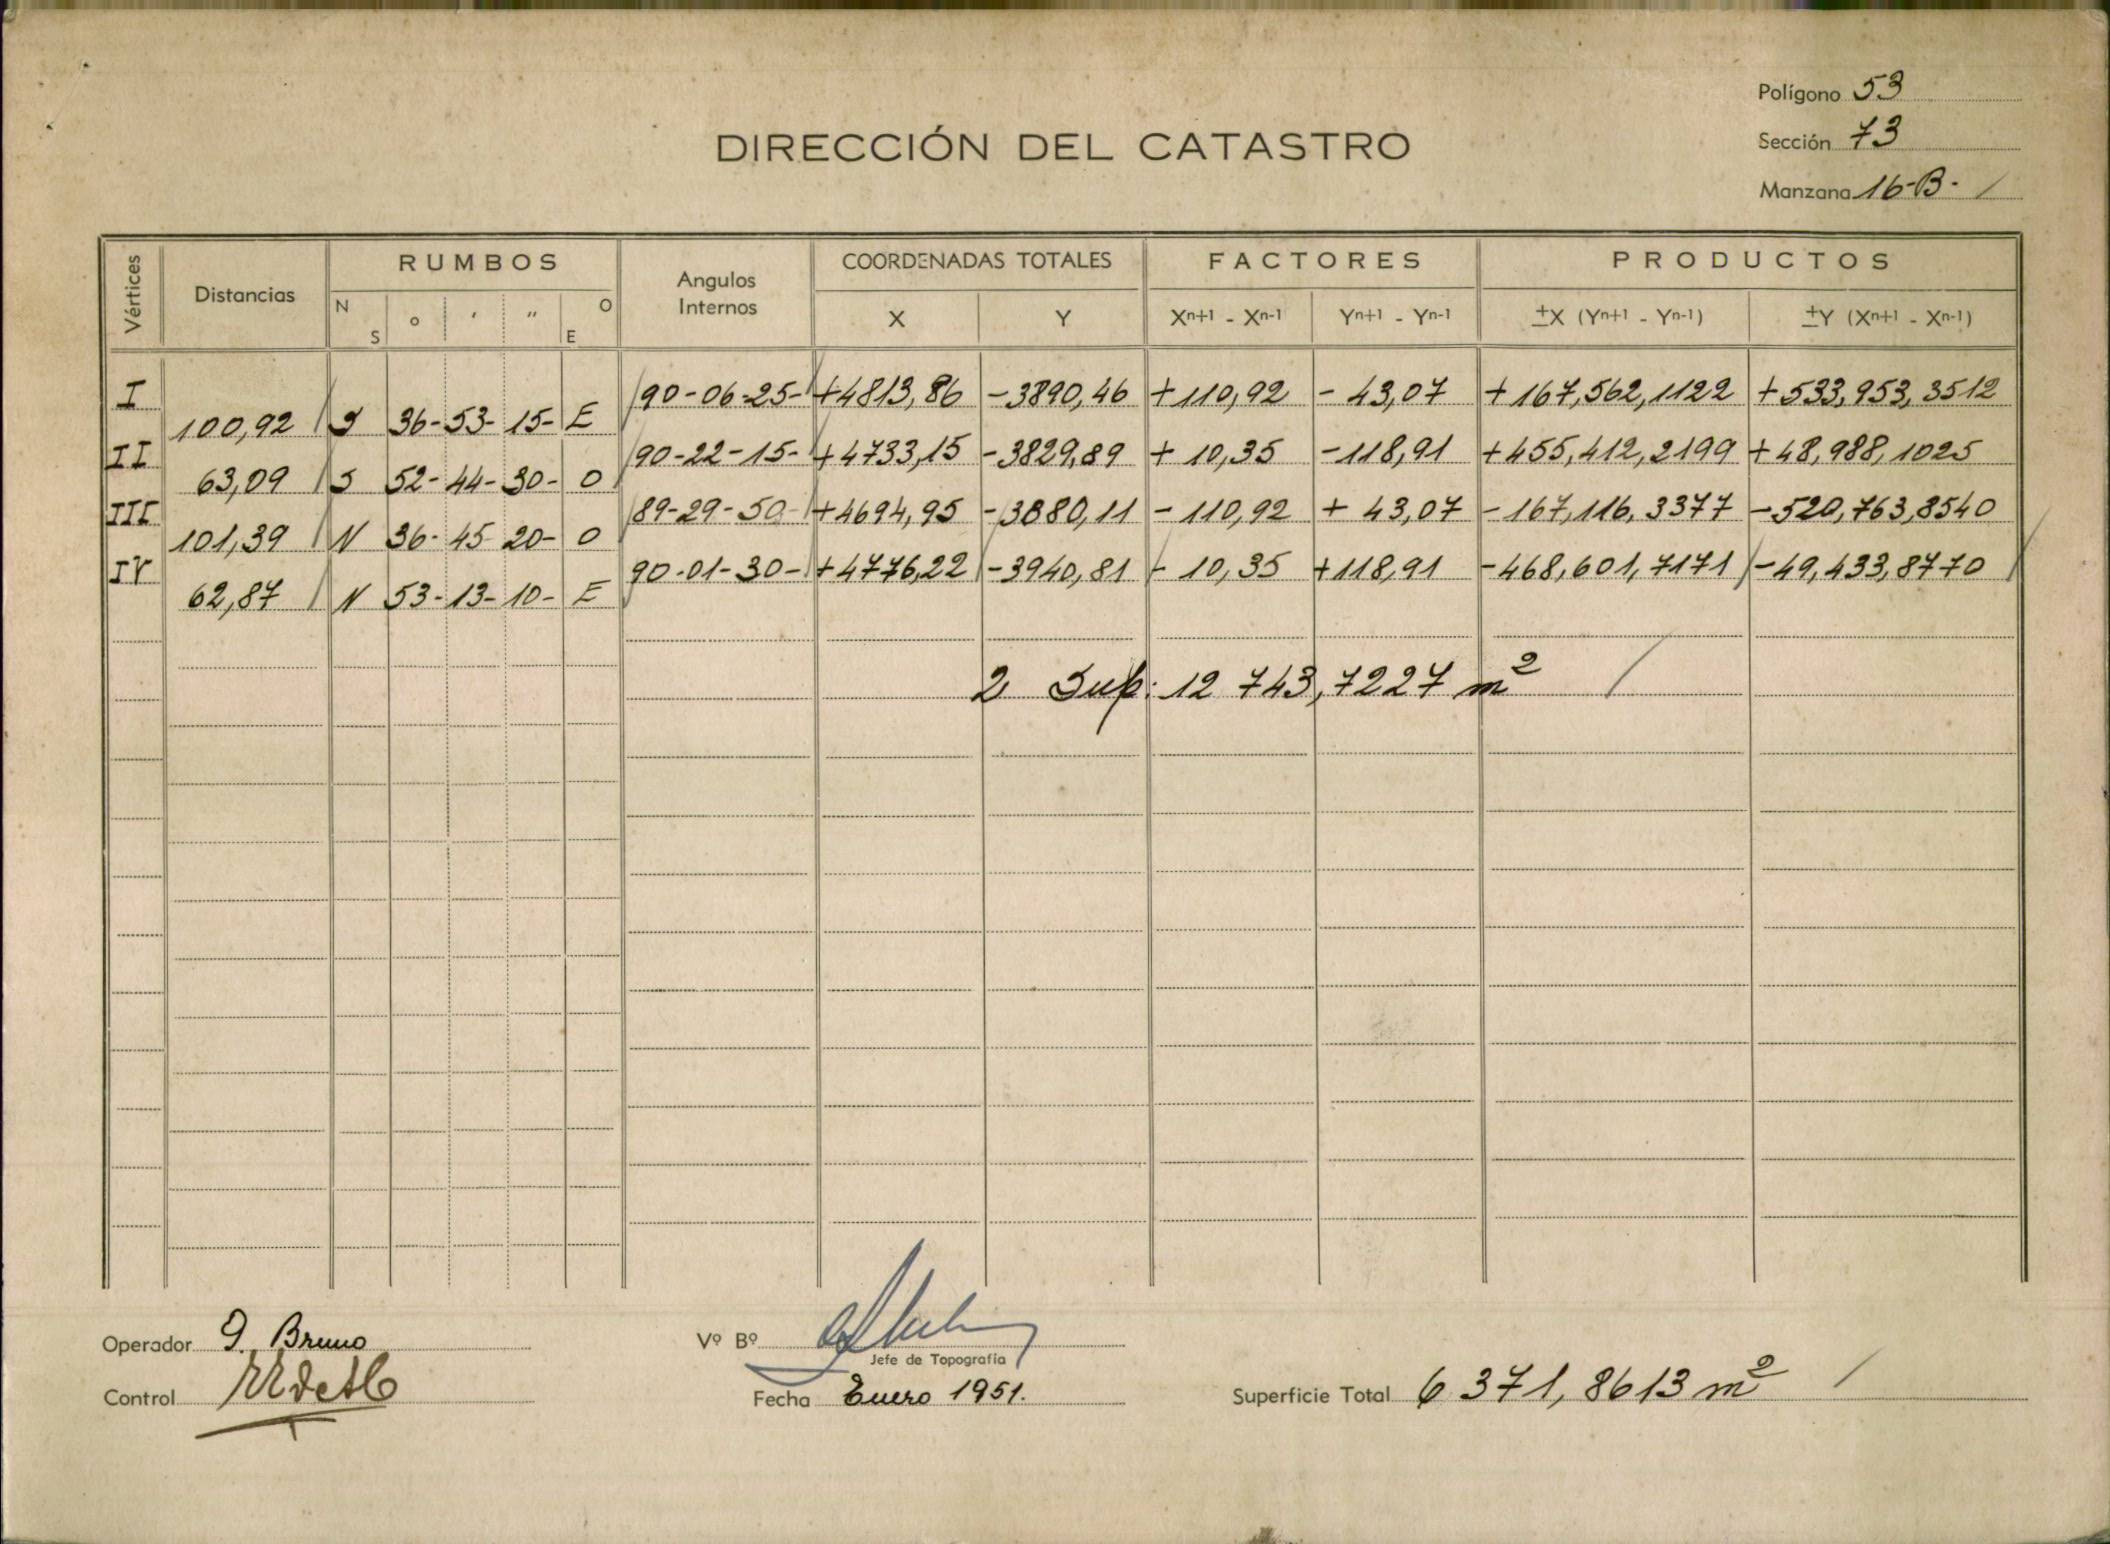 Polígono 53
DIRECCIÓN DEL CATASTRO
Sección 73
Manzana 16-B-
Vértices Distancias RUMBOS N S ° ' " O E Angulos Internos COORDENADAS TOTALES X Y FACTORES Xn+1 - Xn-1 Yn+1 - Yn-1 PRODUCTOS ±X (Yn+1 - Yn-1) ±Y (Xn+1 - Xn-1)
I 90-06-25- +4813,86 -3890,46 +110,92 - 43,07 +167,562,1122 +533,953,3512
100,92 S 36-53-15- E
II 90-22-15- +4733,15 -3829,89 + 10,35 -118,91 +455,412,2199 +48,988,1025
63,09 S 52-44-30- O
III 89-29-50- +4694,95 -3880,11 - 110,92 + 43,07 -167,116,3377 -520,763,8540
101,39 N 36-45 20- O
IV 90-01-30- +4776,22 -3940,81 - 10,35 +118,91 -468,601,7171 -49,433,8770
62,87 N 53-13-10- E
2 Sup: 12 743,7227 m2
Operador J. Bruno
Vº Bº
Jefe de Topografía
Control
Fecha Enero 1951.
Superficie Total 6 371,8613 m2